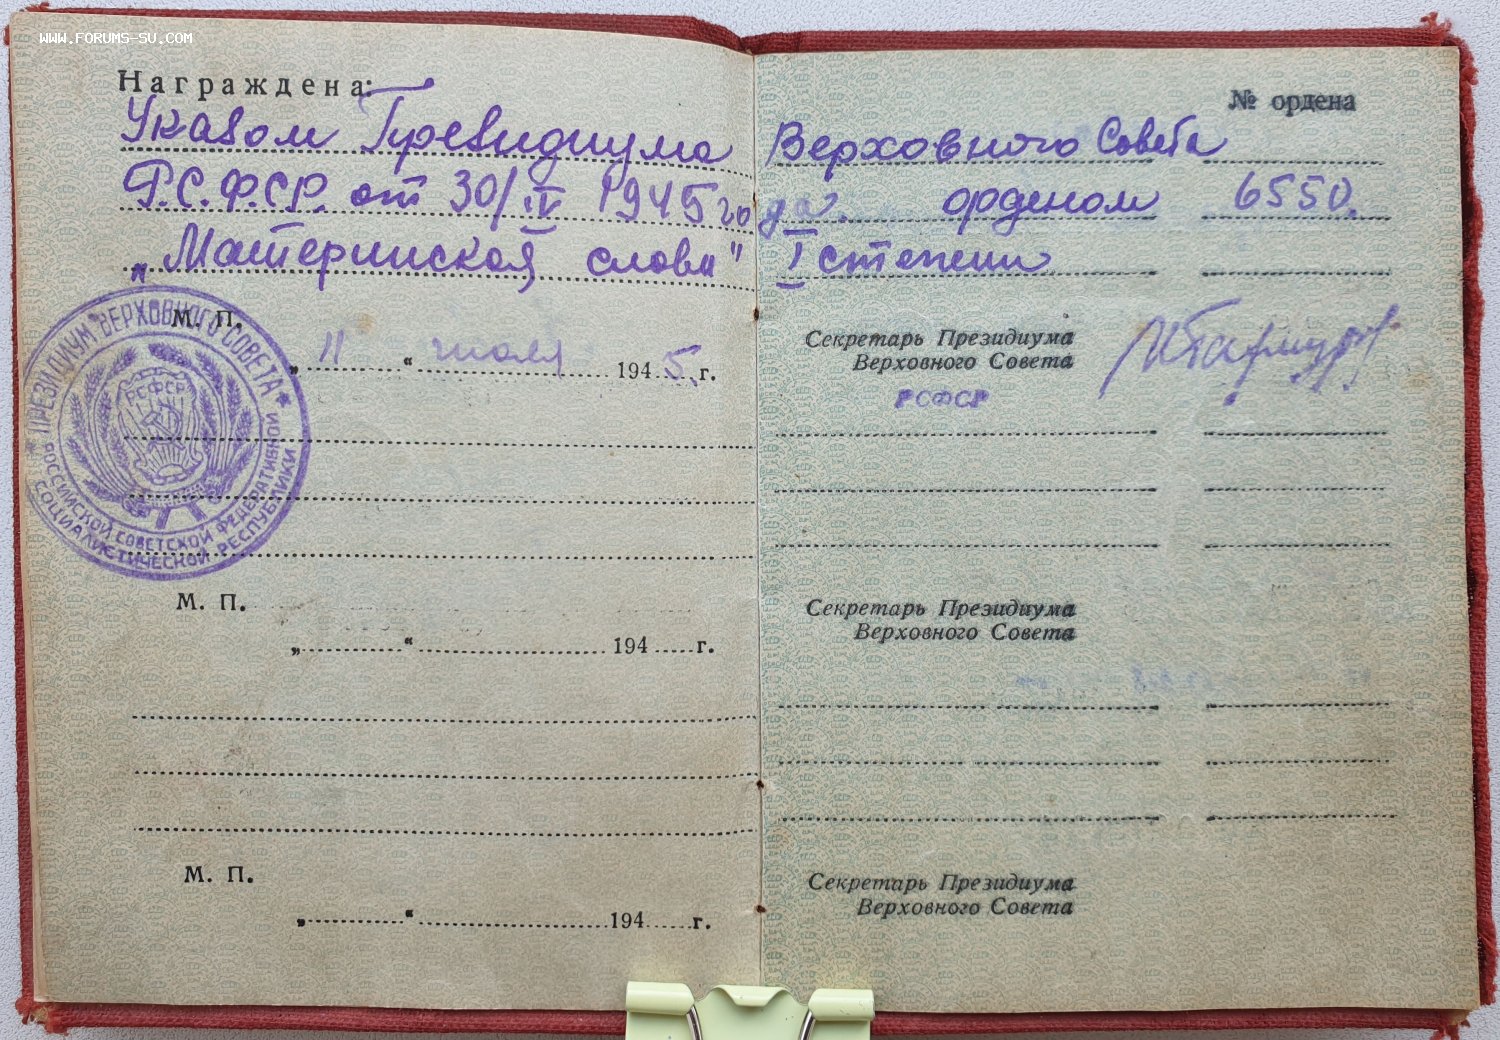 WWW.FORUMS-SU.COM
Награждена:
Указом Президиума
Р.С.Ф.С.Р. от 30/IV 1945 го
„Материнская слава"
М. П.
„ 11 “ июля 1945 г.
ПРЕЗИДИУМ ВЕРХОВНОГО СОВЕТА
РОССИЙСКОЙ СОВЕТСКОЙ ФЕДЕРАТИВНОЙ
СОЦИАЛИСТИЧЕСКОЙ РЕСПУБЛИКИ
РСФСР
М. П.
„ “ 194 г.
М. П.
„ “ 194 г.
№ ордена
Верховного Совета
да. орденом 6550.
I степени
Секретарь Президиума
Верховного Совета
РСФСР
Секретарь Президиума
Верховного Совета
Секретарь Президиума
Верховного Совета